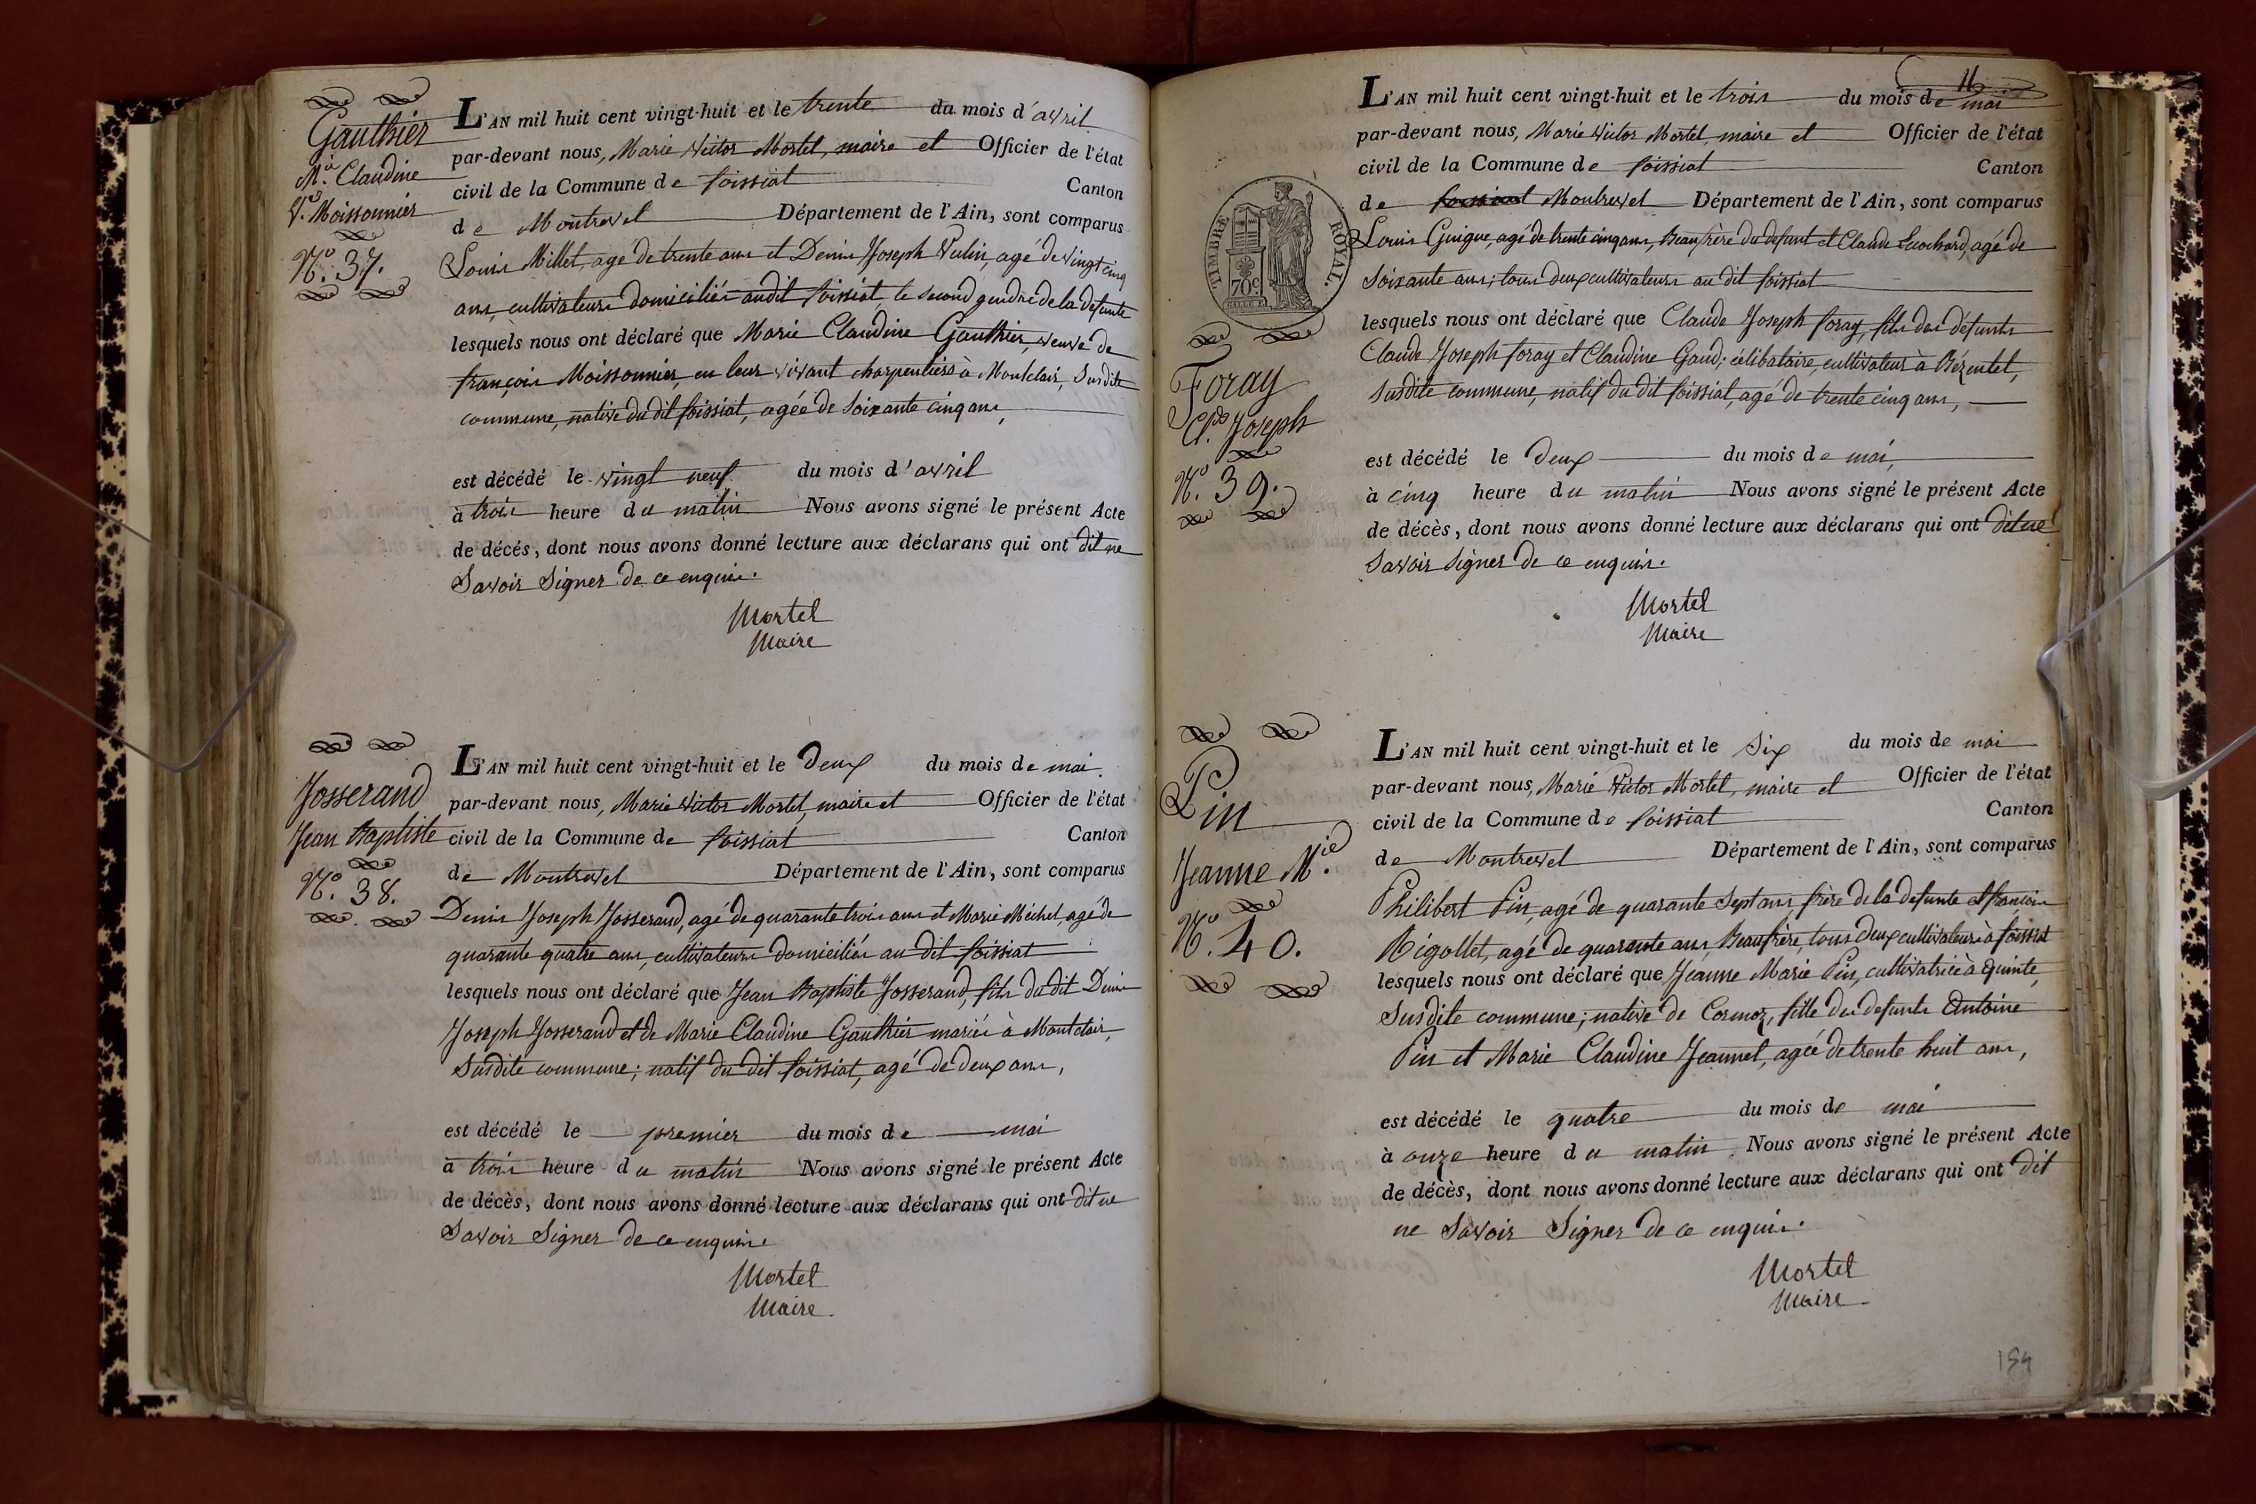 Gauthier
M.ie Claudine
V.e Moissonnier
N.o 37.
L'AN mil huit cent vingt-huit et le trente du mois d'avril
par-devant nous, Marie Victor Mortel, maire et Officier de l'état
civil de la Commune de foissiat Canton
de Montrevel Département de l'Ain, sont comparus
Louis Millet, agé de trente ans et Denis Joseph Vulin, agé de vingt cinq
ans, cultivateurs domiciliés audit foissiat, le second gendre de la defunte
lesquels nous ont déclaré que Marie Claudine Gauthier, veuve de
françois Moissonnier, en leur vivant charpentiers à Montclair, Susdite
commune, native du dit foissiat, agée de soixante cinq ans,
est décédé le vingt neuf du mois d'avril
à trois heure du matin Nous avons signé le présent Acte
de décés, dont nous avons donné lecture aux déclarans qui ont dit ne
Savoir Signer de ce enquis.
Mortel
Maire
Josserand
Jean Baptiste
N.o 38.
L'AN mil huit cent vingt-huit et le deux du mois de mai.
par-devant nous, Marie Victor Mortel, maire et Officier de l'état
civil de la Commune de foissiat Canton
de Montrevel Département de l'Ain, sont comparus
Denis Joseph Josserand, agé de quarante trois ans et Marie Michel, agé de
quarante quatre ans, cultivateurs domiciliés au dit foissiat
lesquels nous ont déclaré que Jean Baptiste Josserand, fils du dit Denis
Joseph Josserand et de Marie Claudine Gauthier mariés à Montclair,
Susdite commune; natif du dit foissiat, agé de deux ans,
est décédé le premier du mois de mai
à trois heure du matin Nous avons signé le présent Acte
de décès, dont nous avons donné lecture aux déclarans qui ont dit ne
Savoir Signer de ce enquis.
Mortel
Maire.
16
TIMBRE ROYAL.
70c
Foray
Cl.de Joseph
N.o 39.
L'AN mil huit cent vingt-huit et le trois du mois de mai
par-devant nous, Marie Victor Mortel, maire et Officier de l'état
civil de la Commune de foissiat Canton
de foissiat Montrevel Département de l'Ain, sont comparus
Louis Guigue, agé de trente cinq ans, Beaufrère du defunt et Claude agé de
soixante ans; tous deux cultivateurs au dit foissiat
lesquels nous ont déclaré que Claude Joseph foray, fils des défunts
Claude Joseph foray et Claudine Gaud; célibataire, cultivateur à Bézentet,
susdite commune, natif du dit foissiat, agé de trente cinq ans,
est décédé le deux du mois de mai,
à cinq heure du matin Nous avons signé le présent Acte
de décès, dont nous avons donné lecture aux déclarans qui ont dit ne
Savoir signer de ce enquis.
Mortel
Maire
Pin
Jeanne M.ie
N.o 40.
L'AN mil huit cent vingt-huit et le Six du mois de mai
par-devant nous, Marie Victor Mortel, maire et Officier de l'état
civil de la Commune de foissiat Canton
de Montrevel Département de l'Ain, sont comparus
Philibert Pin, agé de quarante Sept ans frère de la defunte et françois
Rigollet, agé de quarante ans, Beaufrère, tous deux cultivateurs à foissiat
lesquels nous ont déclaré que Jeanne Marie Pin, cultivatrice à Quinte,
Susdite commune; native de Cormoz, fille des defunts Antoine
Pin et Marie Claudine Jeannet, agée de trente huit ans,
est décédé le quatre du mois de mai
à onze heure du matin. Nous avons signé le présent Acte
de décès, dont nous avons donné lecture aux déclarans qui ont dit
ne Savoir Signer de ce enquis.
Mortel
Maire.
154